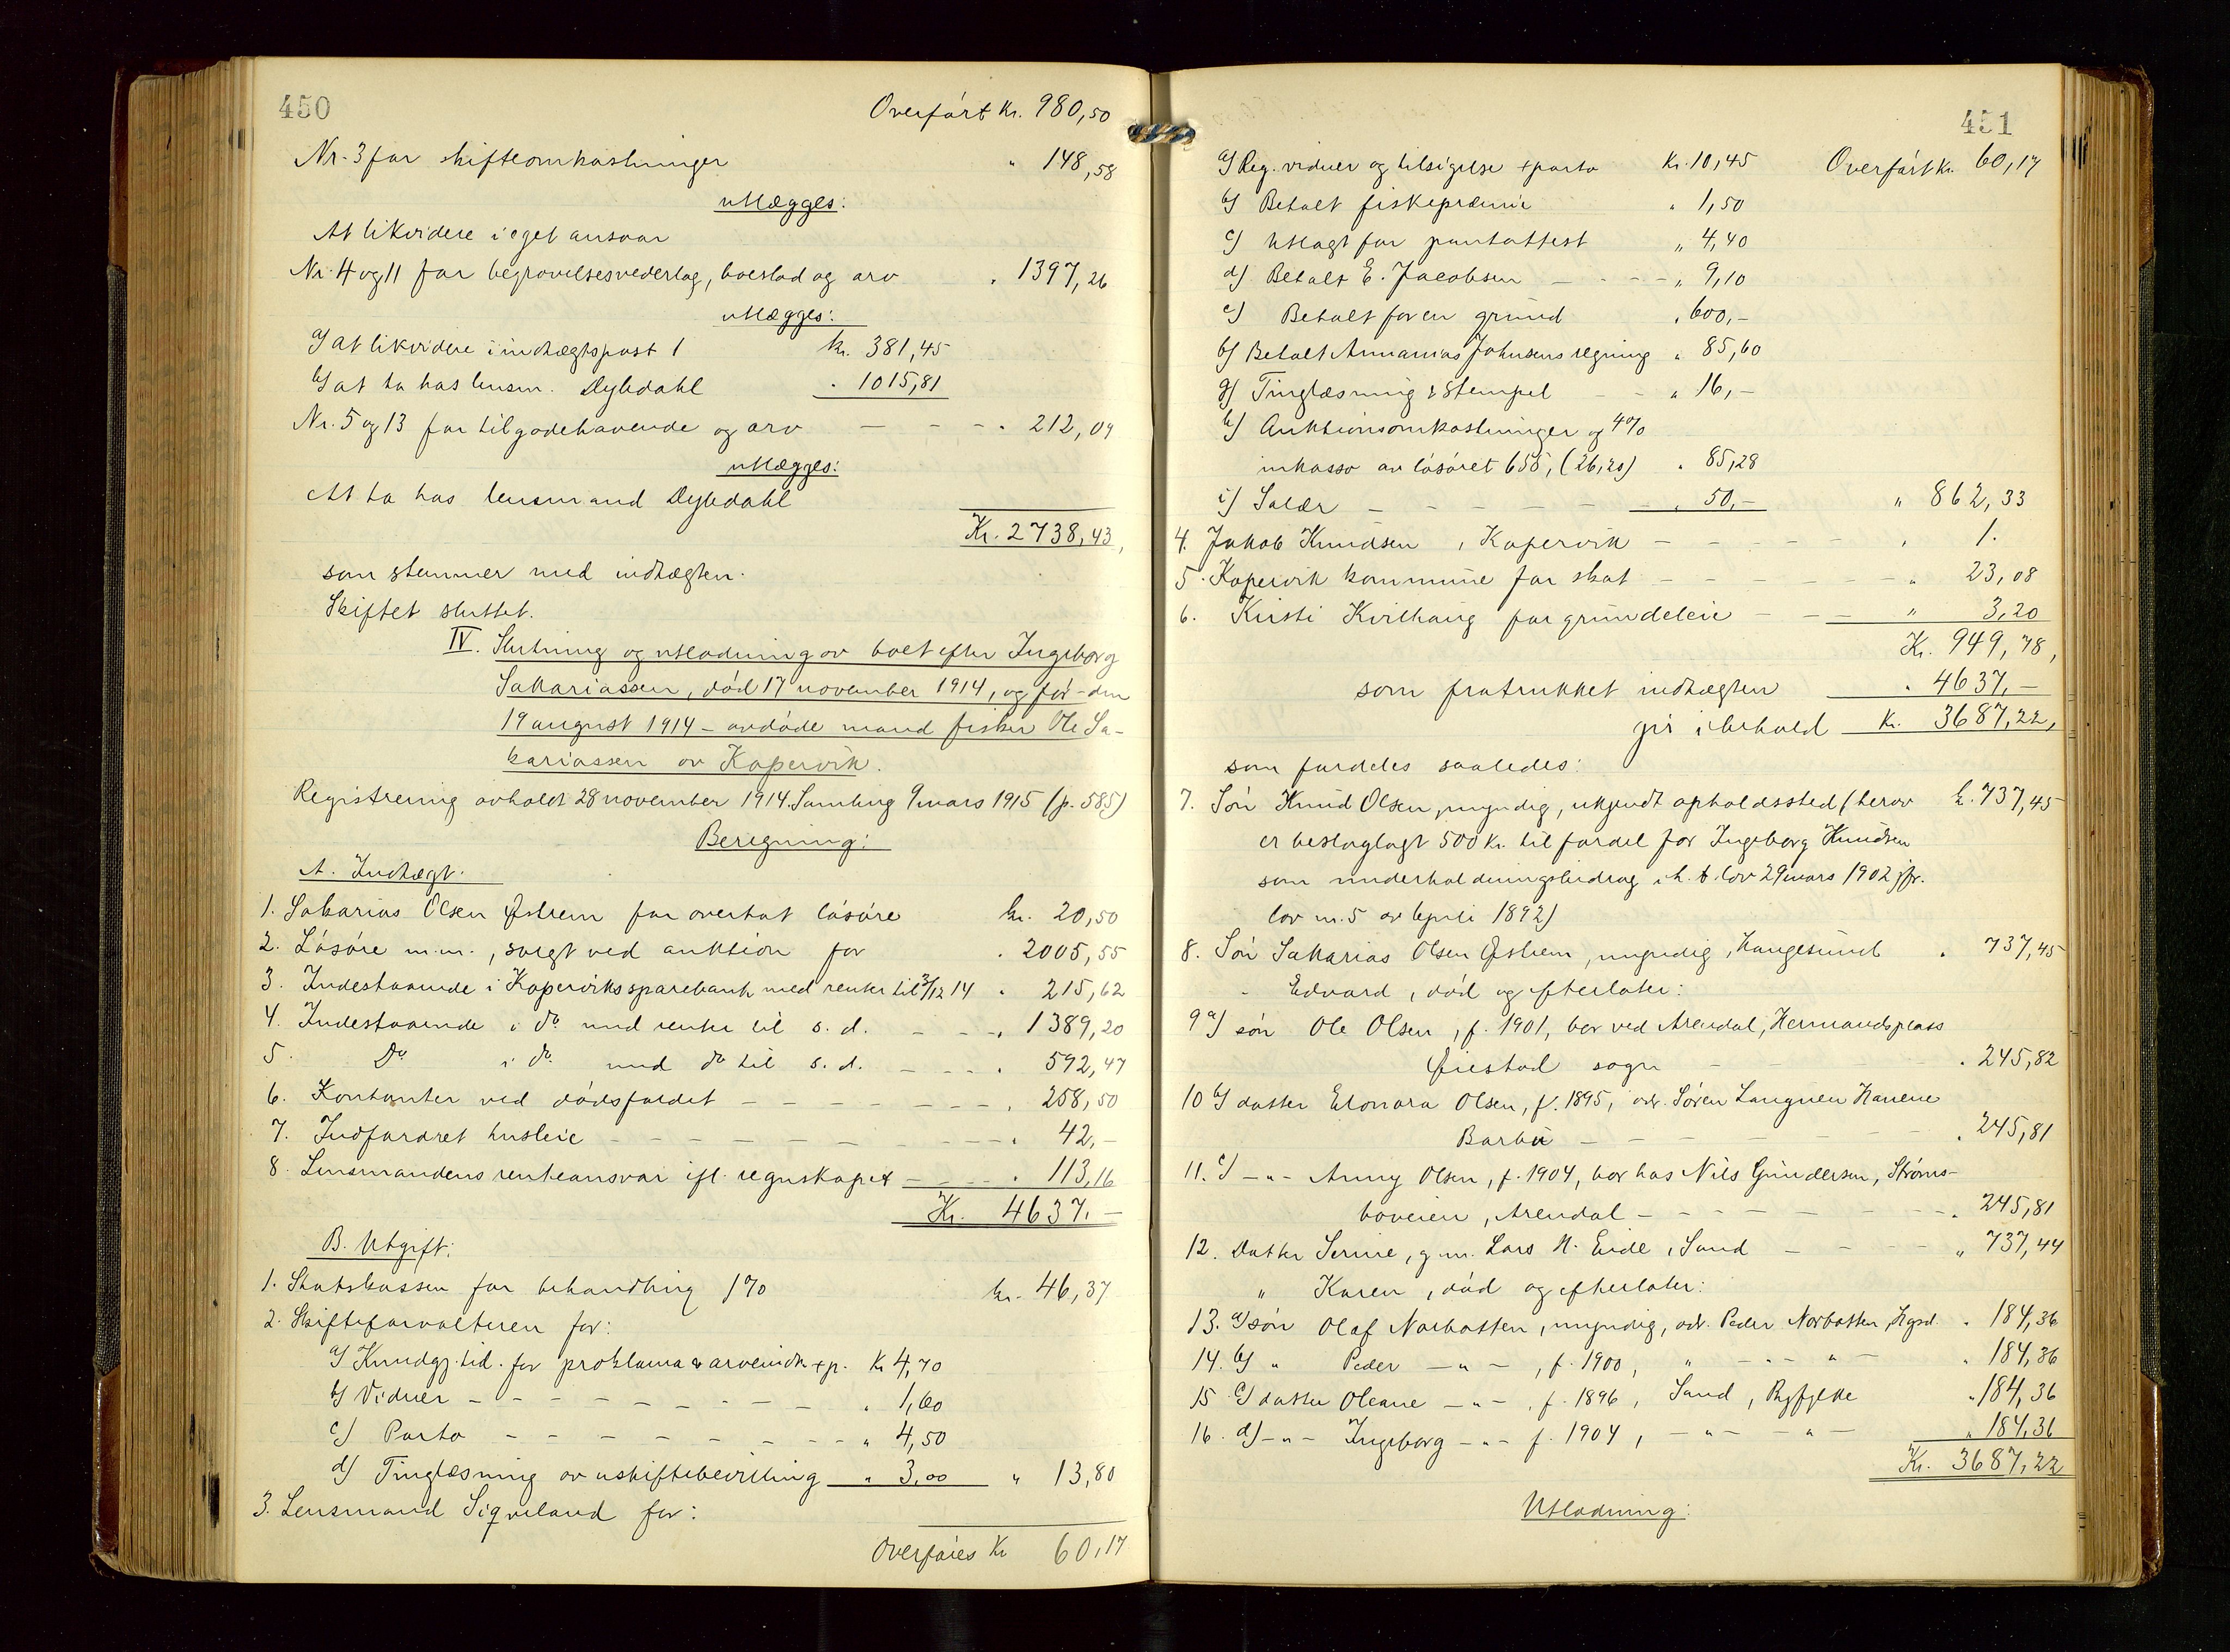 450
Overført Kr. 980,50
Nr. 3 for skifteomkostninger " 148,58
utlægges:
At likvidere i eget ansvar
Nr. 4 og 11 for begravelsesvederlag, boeslod og arv " 1397,26
utlægges:
a) at likvidere i indtægtspost 1 kr. 381,45
b) at ta hos lensm. Dybdahl " 1015,81
Nr. 5 og 13 for tilgodehavende og arv — — — " 212,09
utlægges:
At ta hos lensmand Dybdahl
Kr. 2738,43,
som stemmer med indtægten.
Skiftet sluttet.
IV. Slutning og utlodning av boet efter Ingeborg
Sakariassen, død 17 november 1914, og før - den
19 august 1914 - avdøde mand fisker Ole Sa-
kariassen av Kopervik.
Registrering avholdt 28 november 1914. Samling 9 mars 1915 (p. 585)
Beregning:
A. Indtægt.
1. Sakarias Olsen Østrem for overtat løsøre kr. 20,50
2. Løsøre m.m., solgt ved auktion for " 2005,55
3. Indestaaende i Koperviks sparebank med renter til 3/12 14 " 215,62
4. Indestaaende i do med renter til s. d. — — " 1389,20
5. Do i do med do til s. d. — — — " 592,47
6. Kontanter ved dødsfaldet — — — — — — " 258,50
7. Indfordret husleie — — — — — — — " 42,-
8. Lensmandens renteansvar ifl. regnskapet — — — " 113,16
Kr. 4637.—
B. Utgift:
1. Statskassen for behandling 1% kr. 46,37
2. Skifteforvalteren for:
a) Kundgj. tid. for proklama & arveindk. + p. Kr 4,70
b) Vidner — — — — — — — — " 1,60
c) Porto — — — — — — — — " 4,50
d) Tinglæsning av uskiftebevilling " 3,00 " 13,80
3. Lensmand Siqveland for:
Overføres Kr 60,17
451
a) Reg. vidner og tilsigelse + porto Kr. 10,45 Overført Kr. 60,17
b) Betalt fiskepræmie " 1,50
c) Utlagt for pantattest " 4,40
d) Betalt E. Jacobsen — - - - " 9,10
e) Betalt for en grund " 600,-
f) Betalt Annanias Johnsens regning " 85,60
g) Tinglæsning & stempel - - " 16,-
h) Auktionsomkostninger og 4%
inkasso av løsøret 655, (26,20) " 85,28
i) Salær — — — — — — " 50,- " 862,33
4. Jakob Knudsen, Kopervik — — — — — " 1.
5. Kopervik kommune for skat — — — — — — " 23,08
6. Kirsti Kvilhaug for grundeleie — — — " 3,20
Kr. 949,78,
som fratrukket indtægten " 4637,-
gir i behold Kr. 3687,22,
som fordeles saaledes:
7. Søn Knud Olsen, myndig, ukjendt opholdssted (herav k. 737,45
er beslaglagt 500 kr. til fordel for Ingeborg Knudsen
som underholdningsbidrag i h. t. lov 29 mars 1902 jfr.
lov nr. 5 av 6 juli 1892)
8. Søn Sakarias Olsen Østrem, myndig, Haugesund " 737,45
- Edvard, død og efterlater:
9 a) søn Ole Olsen, f. 1901, bor ved Arendal, Hermandsplass
Øiestad sogn — — — — — " 245,82
10 b) datter Elonora Olsen, f. 1895, adr. Søren Langnen Havene
Barbu — — — — — — " 245,81
11. c) -"- Anny Olsen, f. 1904, bor hos Nils Gundersen, Strøms-
boveien, Arendal — — — — — — — " 245,81
12. Datter Serine, g.m. Lars H. Eide, Sand — — — — " 737,44
" Karen, død og efterlater:
13. a) søn Olaf Norbotten, myndig, adr. Peder Norbotten, Hgsd. " 184,36
14. b) " Peder — " —, f. 1900, " - - - " - " 184,36
15 c) datter Oleane — " —, f. 1896, Sand, Ryfylke " 184,36
16. d) - " - Ingeborg - " - f. 1904, — " — — " — " 184,36
Kr. 3687,22
Utlodning: